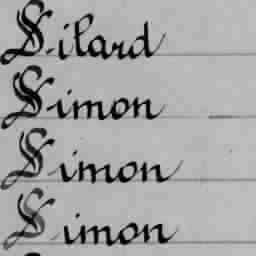 Silard
Simon
Simon
Simon